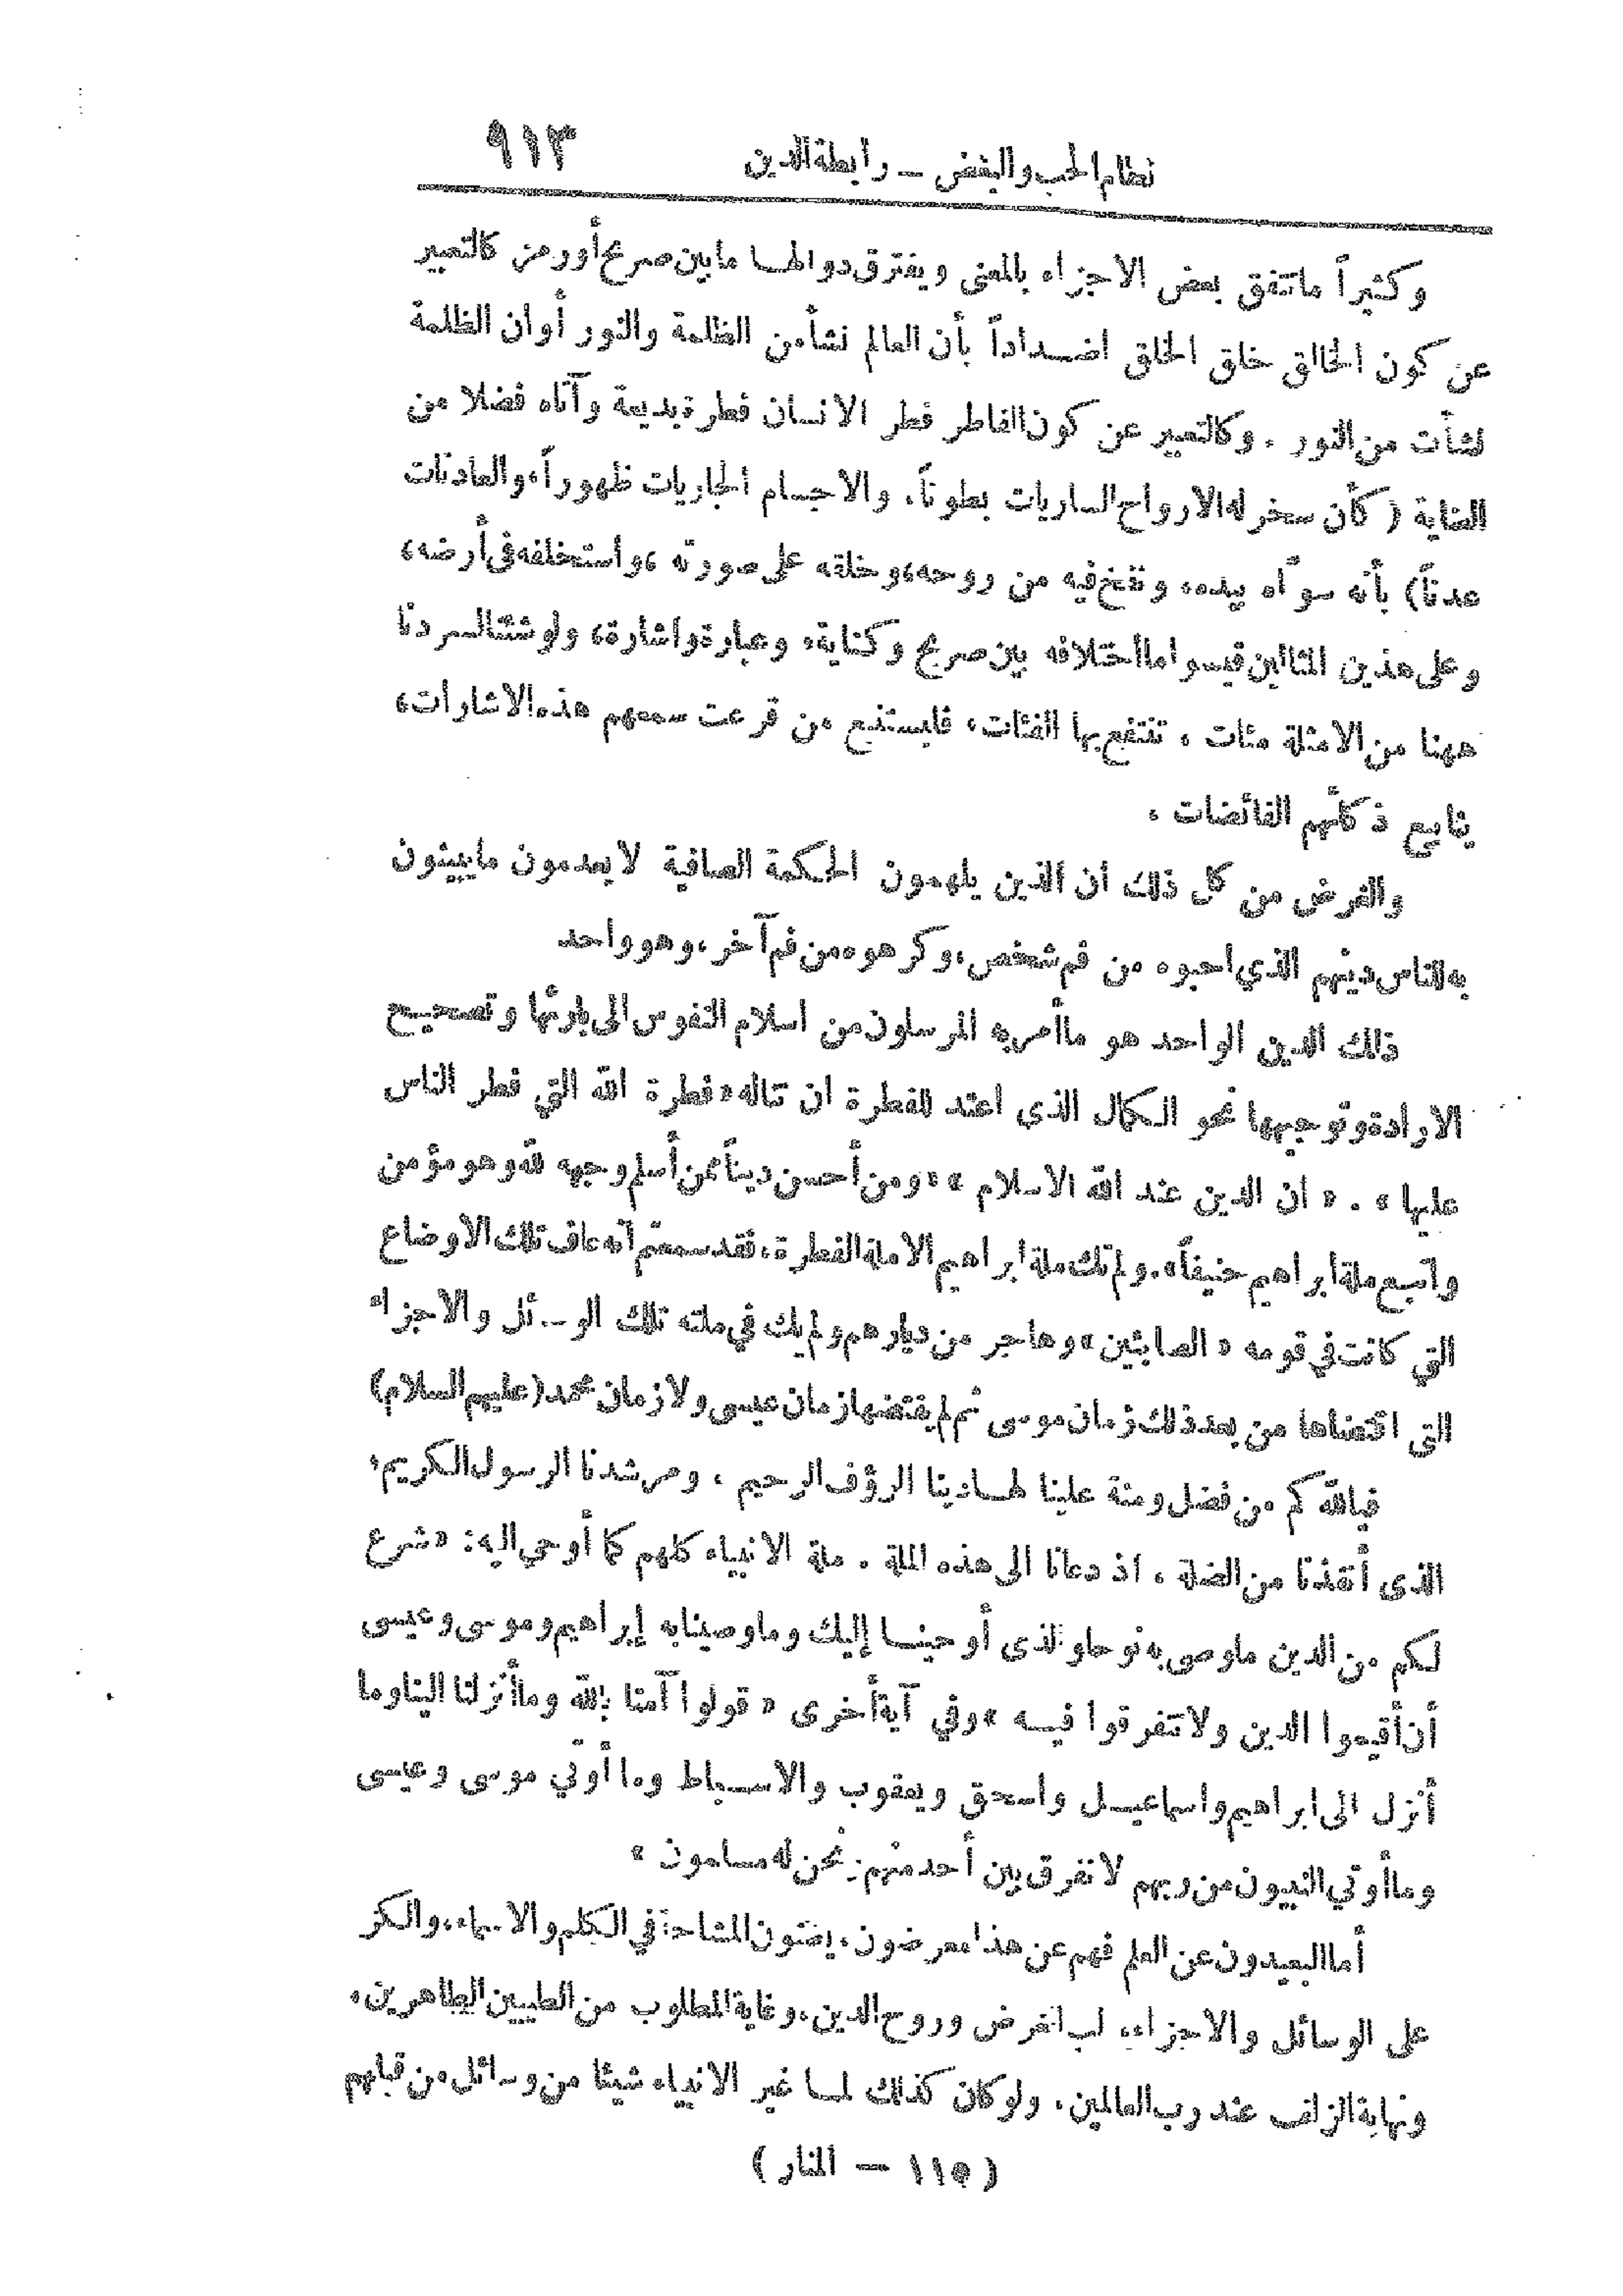 نظام الحب والبغض — رابطة الدين ٩١٣
وكثيراً ماتتفق بعض الاجزاء بالمعنى ويفترق دوالهـا مابين صريح أورمز كالتعبير
عن كون الخالق خلق الخلق اضـداداً بأن العالم نشأ من الظلمة والنور أوان الظلمة
نشأت من النور . وكالتعبير عن كون الفاطر فطر الانسان فطرة بديعة وآتاه فضلا من
العناية ( كأن سخر له الارواح الساريات بطوناً، والاجسام الجاريات ظهوراً، والعادنات
عدناً) بأنه سوّاه بيده، ونفخ فيه من روحه، وخلقه على صورته ، واستخلفه في أرضه،
وعلى هذين المثالين قيسوا ما اختلافه بين صريح وكناية، وعبارة واشارة، ولوشئنا لسردنا
ههنا من الامثلة مئات ، تنتفع بها الفئات، فليستنبع من قرعت سمعهم هذه الاشارات،
ينابيع ذكائهم الفائضات ،
والغرض من كل ذلك ان الذين يلهمون الحكمة الصافية لا يعدمون مايبينون
به للناس دينهم الذي احبوه من فم شخص، وكرهوه من فم آخر، وهو واحد
ذلك الدين الواحد هو ماأمر به المرسلون من اسلام النفوس الى بارئها وتصحيح
الارادة وتوجيهها نحو الكمال الذى اعتد للفطرة ان تناله «فطرة الله التي فطر الناس
عليها» . « ان الدين عند الله الاسلام » «ومن أحسن ديناً ممن أسلم وجهه لله وهو مؤمن
واتبع ملة ابراهيم حنيفاً». ولم تك ملة ابراهيم الا ملة الفطرة، فقد سمعتم أنه عاف تلك الاوضاع
التي كانت في قومه « الصابئين » وهاجر من ديارهم ولم يك في ملته تلك الوسائل والاجزاء
التى اقتضاها من بعد ذلك زمان موسى ثم لم يقتضها زمان عيسى ولا زمان محمد (عليهم السلام)
فيالله كم من فضل ومنة علينا لهـادينا الرؤف الرحيم ، ومرشدنا الرسول الكريم،
الذى أنقذنا من الضلة ، اذ دعانا الى هذه الملة . ملة الانبياء كلهم كما أوحي اليه: «شرع
لكم من الدين ماوصى به نوحا والذى أوحينـا إليك وما وصينا به إبراهيم وموسى وعيسى
أن أقيموا الدين ولا تتفرقوا فيـه » وفي آية أخرى « قولوا آمنا بالله وما أنزلنا الينا وما
أنزل الى ابراهيم واسماعيـل واسحق ويعقوب والاسـباط وما أوتي موسى وعيسى
وما أوتي النبيون من ربهم لا نفرق بين أحد منهم ونحن له مسلمون »
أما البعيدون عن العلم فهم عن هذا معرضون، يظنون المشاحة في الكلم والاسماء، والكز
على الوسائل والاجزاء، لب الغرض وروح الدين، وغاية المطلوب من الطيبين الطاهرين،
ونهاية الزلف عند رب العالمين، ولو كان كذلك لمـا غير الانبياء شيئا من وسائل من قبلهم
(١١٥ — المنار )